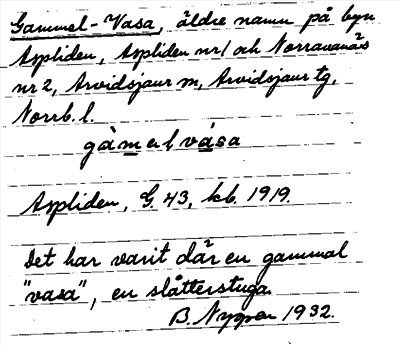 Gammel-Vasa, äldre namn på byn
Aspliden, Aspliden nr 1 och Norravanäs
nr 2, Arvidsjaur sn, Arvidsjaur tg,
Norrb. l.
gàmel vása
Aspliden, G. 43, kb. 1919.
Det har varit där en gammal
"vasa", en slåtterstuga.
B. Nyman 1932.